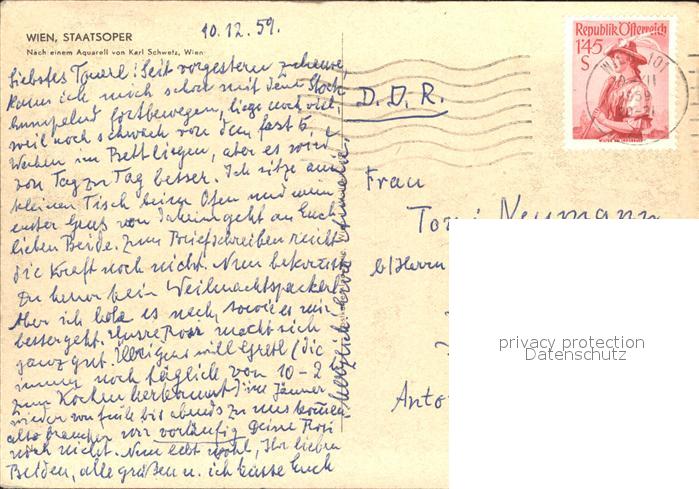 WIEN, STAATSOPER
Nach einem Aquarell von Karl Schwetz, Wien
10.12.59.
Liebstes Tonerl! Seit vorgestern zuhause,
kann ich mich schon mit dem Stock
humpelnd fortbewegen, liege noch viel
weil noch schwach von dem fast 6
Wochen im Bett liegen, aber es wird
von Tag zu Tag besser. Ich sitze am
kleinen Tisch beim Ofen und mein
erster Gruß von daheim geht an Euch
lieben Beide. Zum Briefschreiben reicht
die Kraft noch nicht. Nun bekommst
Du heuer kein Weihnachtspackerl
Aber ich hole es nach, sowie es mir
besser geht. Unsre Rosi macht sich
ganz gut. Übrigens will Gretl (die
immer noch täglich von 10-2
zum Kochen herkommt) im Jänner
wieder von früh bis abends zu uns kommen
also brauchen wir vorläufig Deine Rosi
noch nicht. Nun lebt wohl, Ihr lieben
Beiden, alle grüßen u. ich küsse Euch
herzlich Eure
D.D.R.
Frau
Toni Neumann
b/Herrn
Anto
Republik Österreich
1.45
S
WIEN 101
1959
privacy protection
Datenschutz